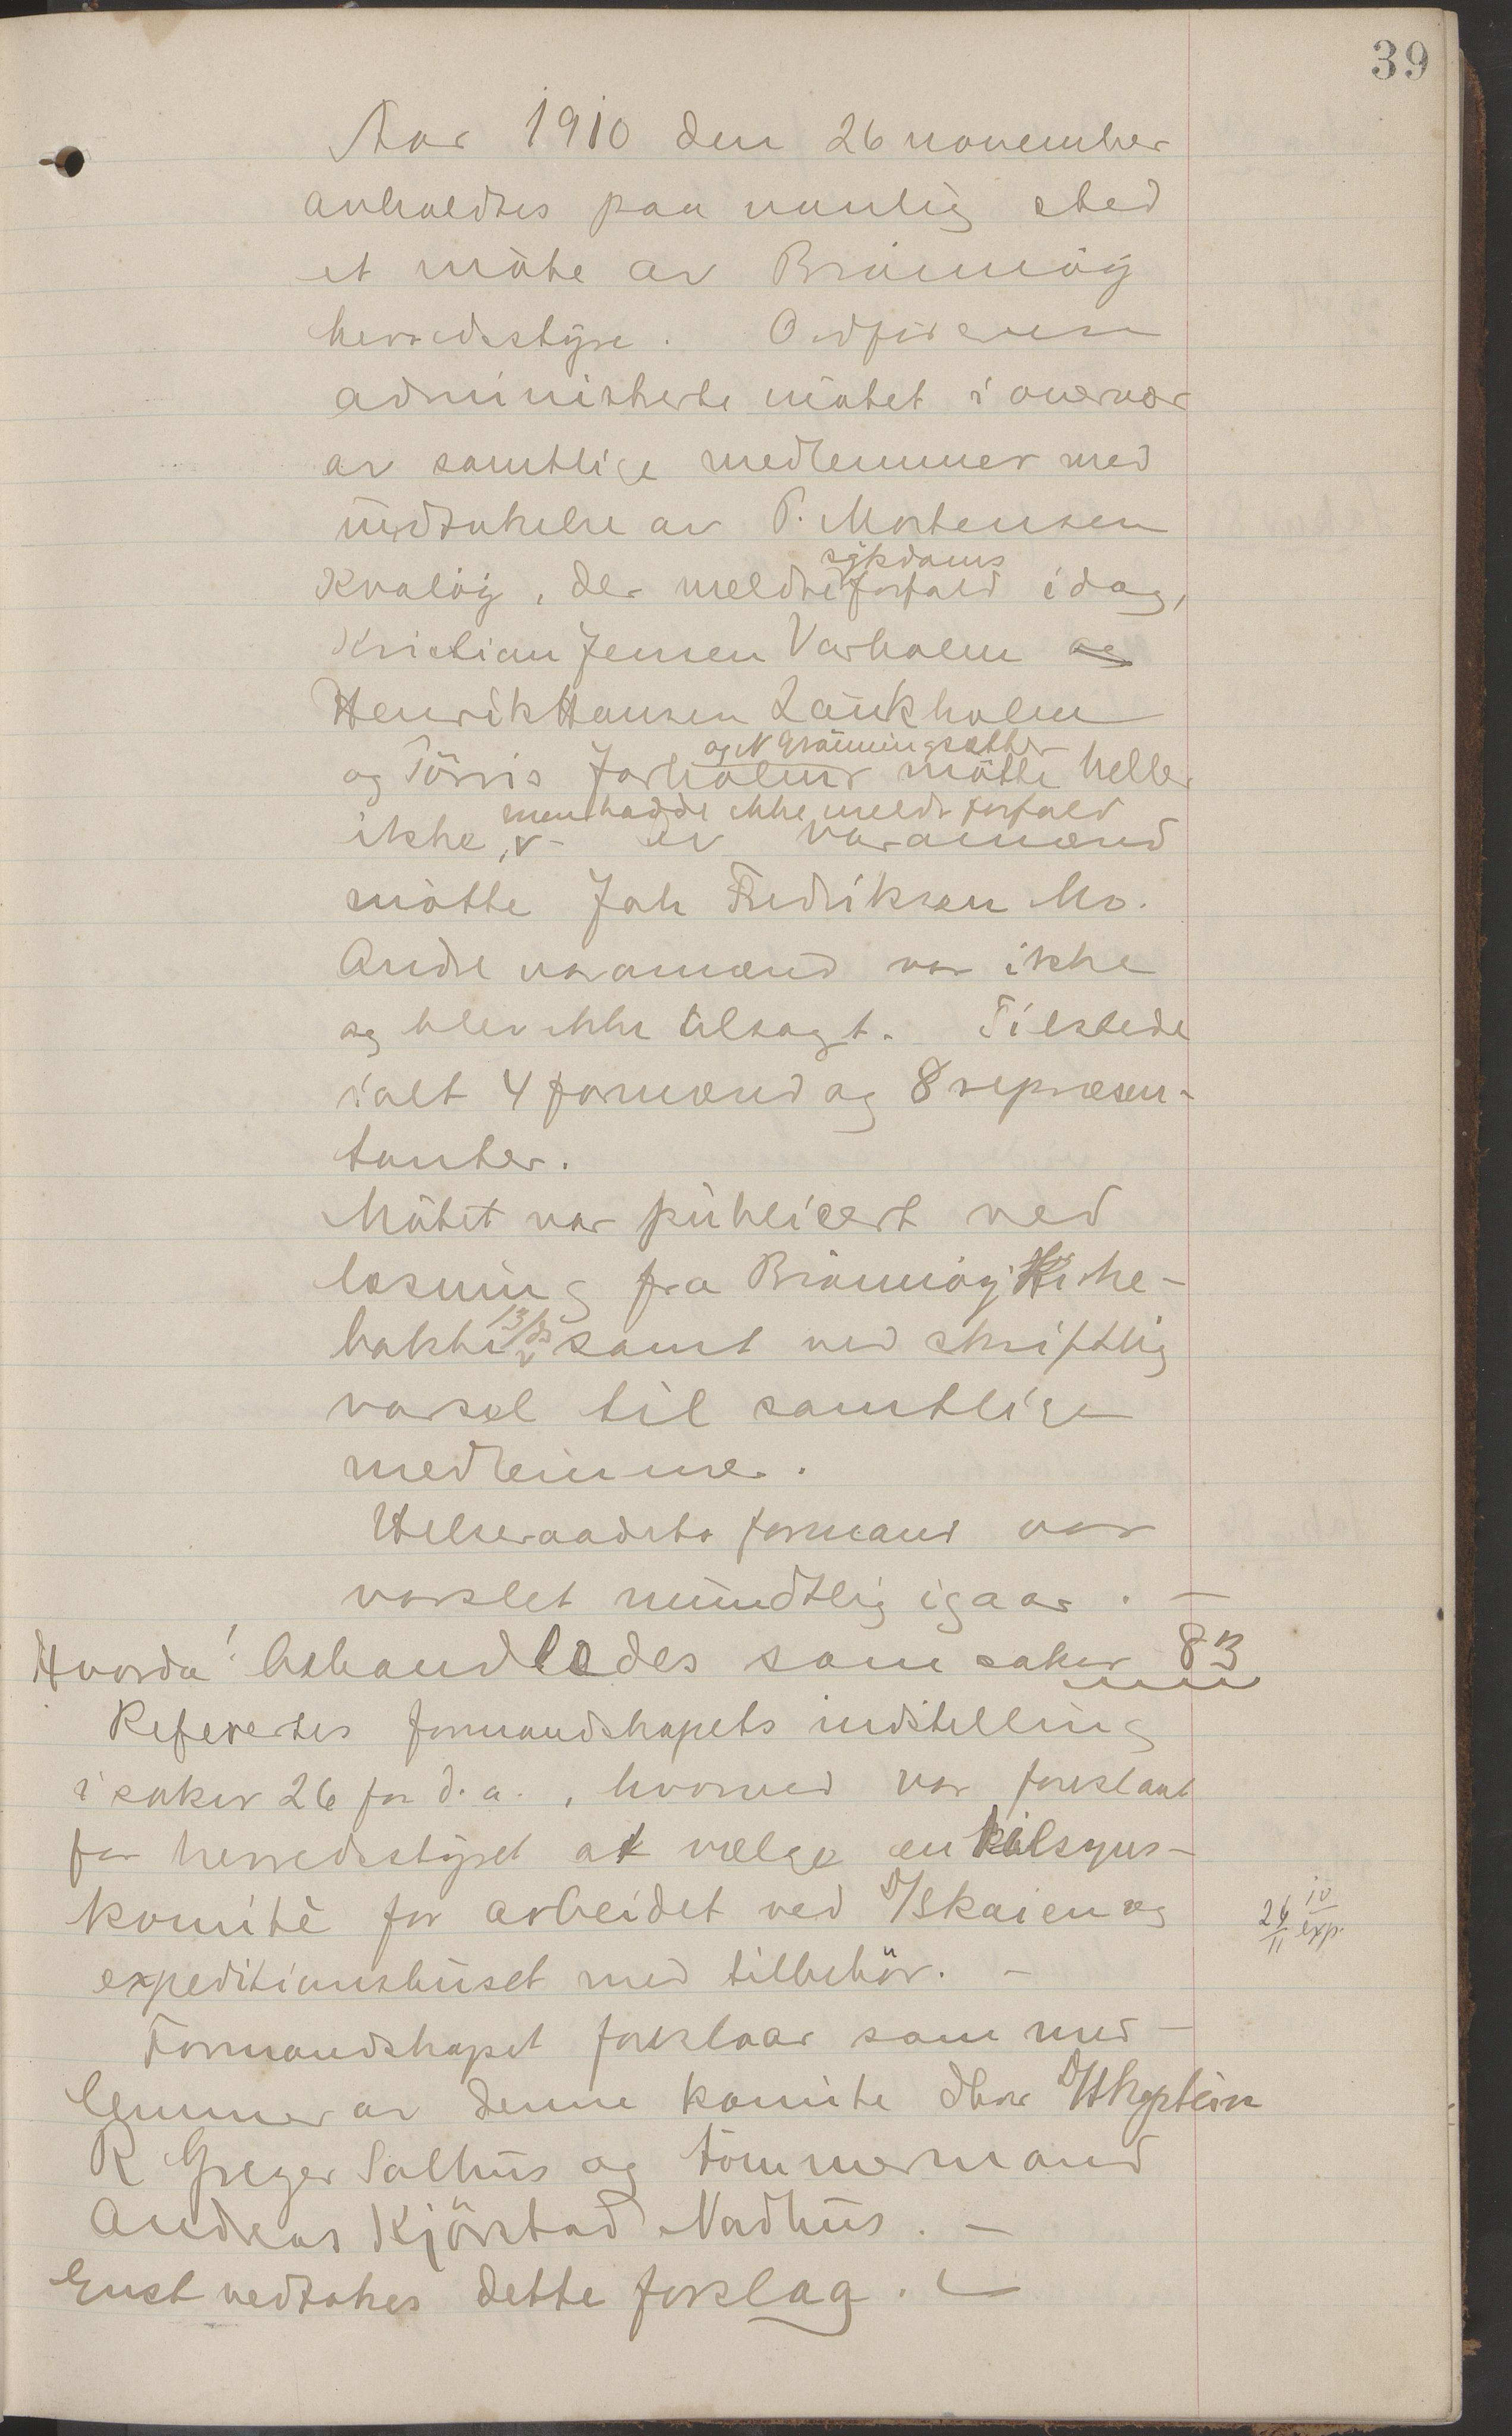 39
Aar 1910 den 26 november
avholdtes paa vanlig sted
et möte av Brönnöy
herredsstyre. Ordföreren
administrerte mötet i overvær
av samtlige medlemmer med
undtakelse av P. Mortensen
sykdoms
Kvalöy, der meldte forfald idag,
Kristian Jensen Varholm og
Henrik Hansen Laukholm
og N Grönningsæther
og Törris Jarholmr mötte heller
men hadde ikke meldt forfald
ikke, av varamænd
mötte Joh Fredriksen Mo.
Andre varamænd var ikke
og blev ikke tilsagt. Tilstede
ialt 4 formænd og 8 repræsen-
tanter.
Mötet var publicert ved
læsning fra Brönnöy Kirke-
bakke 13/ds samt ved skriftlig
varsel til samtlige
medlemmer.
Helseraadets formand var
varslet mundtlig igaar. –
Hvorda! behandledes som saker 83
Refertes formandskapets indstilling
i saker 26 for d. a., hvorved var foreslaat
for herredsstyret at vælge en tilsyns-
komitè for arbeidet ved D/Skaien og
26/11 10 exp.
expeditionshuset med tilbehör. –
Formandskapet foreslaar som med-
lemmer av denne komite dhrr D/Skaptein
R Greger Salhus og tömmermand
Andreas Kjörstad Nordhus. –
Enst vedtokes dette forslag. –